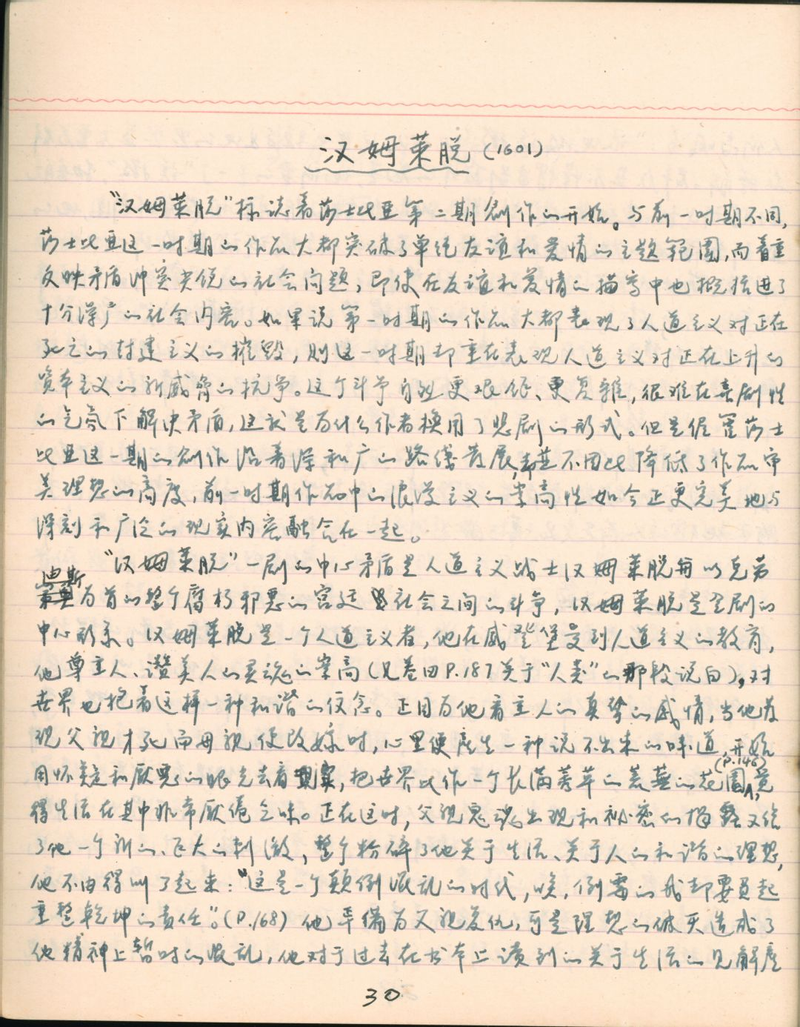 汉姆莱脱(1601)
"汉姆莱脱"标志着莎士比亚第二期创作的开始。与前一时期不同,
莎士比亚这一时期的作品大都突破了单纯友谊和爱情的主题范围,而着重
反映矛盾冲突尖锐的社会问题,即使在友谊和爱情的描写中也概括进了
十分深广的社会内容。如果说第一时期的作品大都表现了人道主义对正在
死亡的封建主义的摧毁,则这一时期却重在表现人道主义对正在上升的
资本主义的新威胁的抗争。这个斗争自然更艰钜、更复杂,很难在喜剧性
的气氛下解决矛盾,这就是为什么作者换用了悲剧的形式。但是儘管莎士
比亚这一期的创作沿着深和广的路线发展,却并不因此降低了作品审
美理想的高度,前一时期作品中的浪漫主义的崇高性如今正更完美地与
深刻和广泛的现实内容融合在一起。
"汉姆莱脱"一剧的中心矛盾是人道主义战士汉姆莱脱与以克劳
迪斯为首的整个腐朽邪恶的宫廷社会之间的斗争,汉姆莱脱是全剧的
中心形象。汉姆莱脱是一个人道主义者,他在威登堡受到人道主义的教育,
他尊重人、讚美人的灵魂的崇高(见卷四P.187关于"人类"的那段说白),对
世界也抱着这样一种和谐的信念。正因为他有重人的真挚的感情,当他发
现父親才死而母親便改嫁时,心里便產生一种说不出来的味道,开始
用怀疑和厌恶的眼光去看现实,把世界比作一个长满莠草的荒蕪的花園(P.146),觉
得生活在其中非常厌倦乏味。正在这时,父親鬼魂出现和祕密的揭露又给
了他一个新的、巨大的刺激,整个粉碎了他关于生活、关于人的和谐的理想,
他不由得叫了起来:"这是一个颠倒混乱的时代,唉,倒霉的我却要负起
重整乾坤的责任"。(P.168) 他準備为父親复仇,可是理想的破灭造成了
他精神上暂时的混乱,他对于过去在书本上读到的关于生活的见解產
30